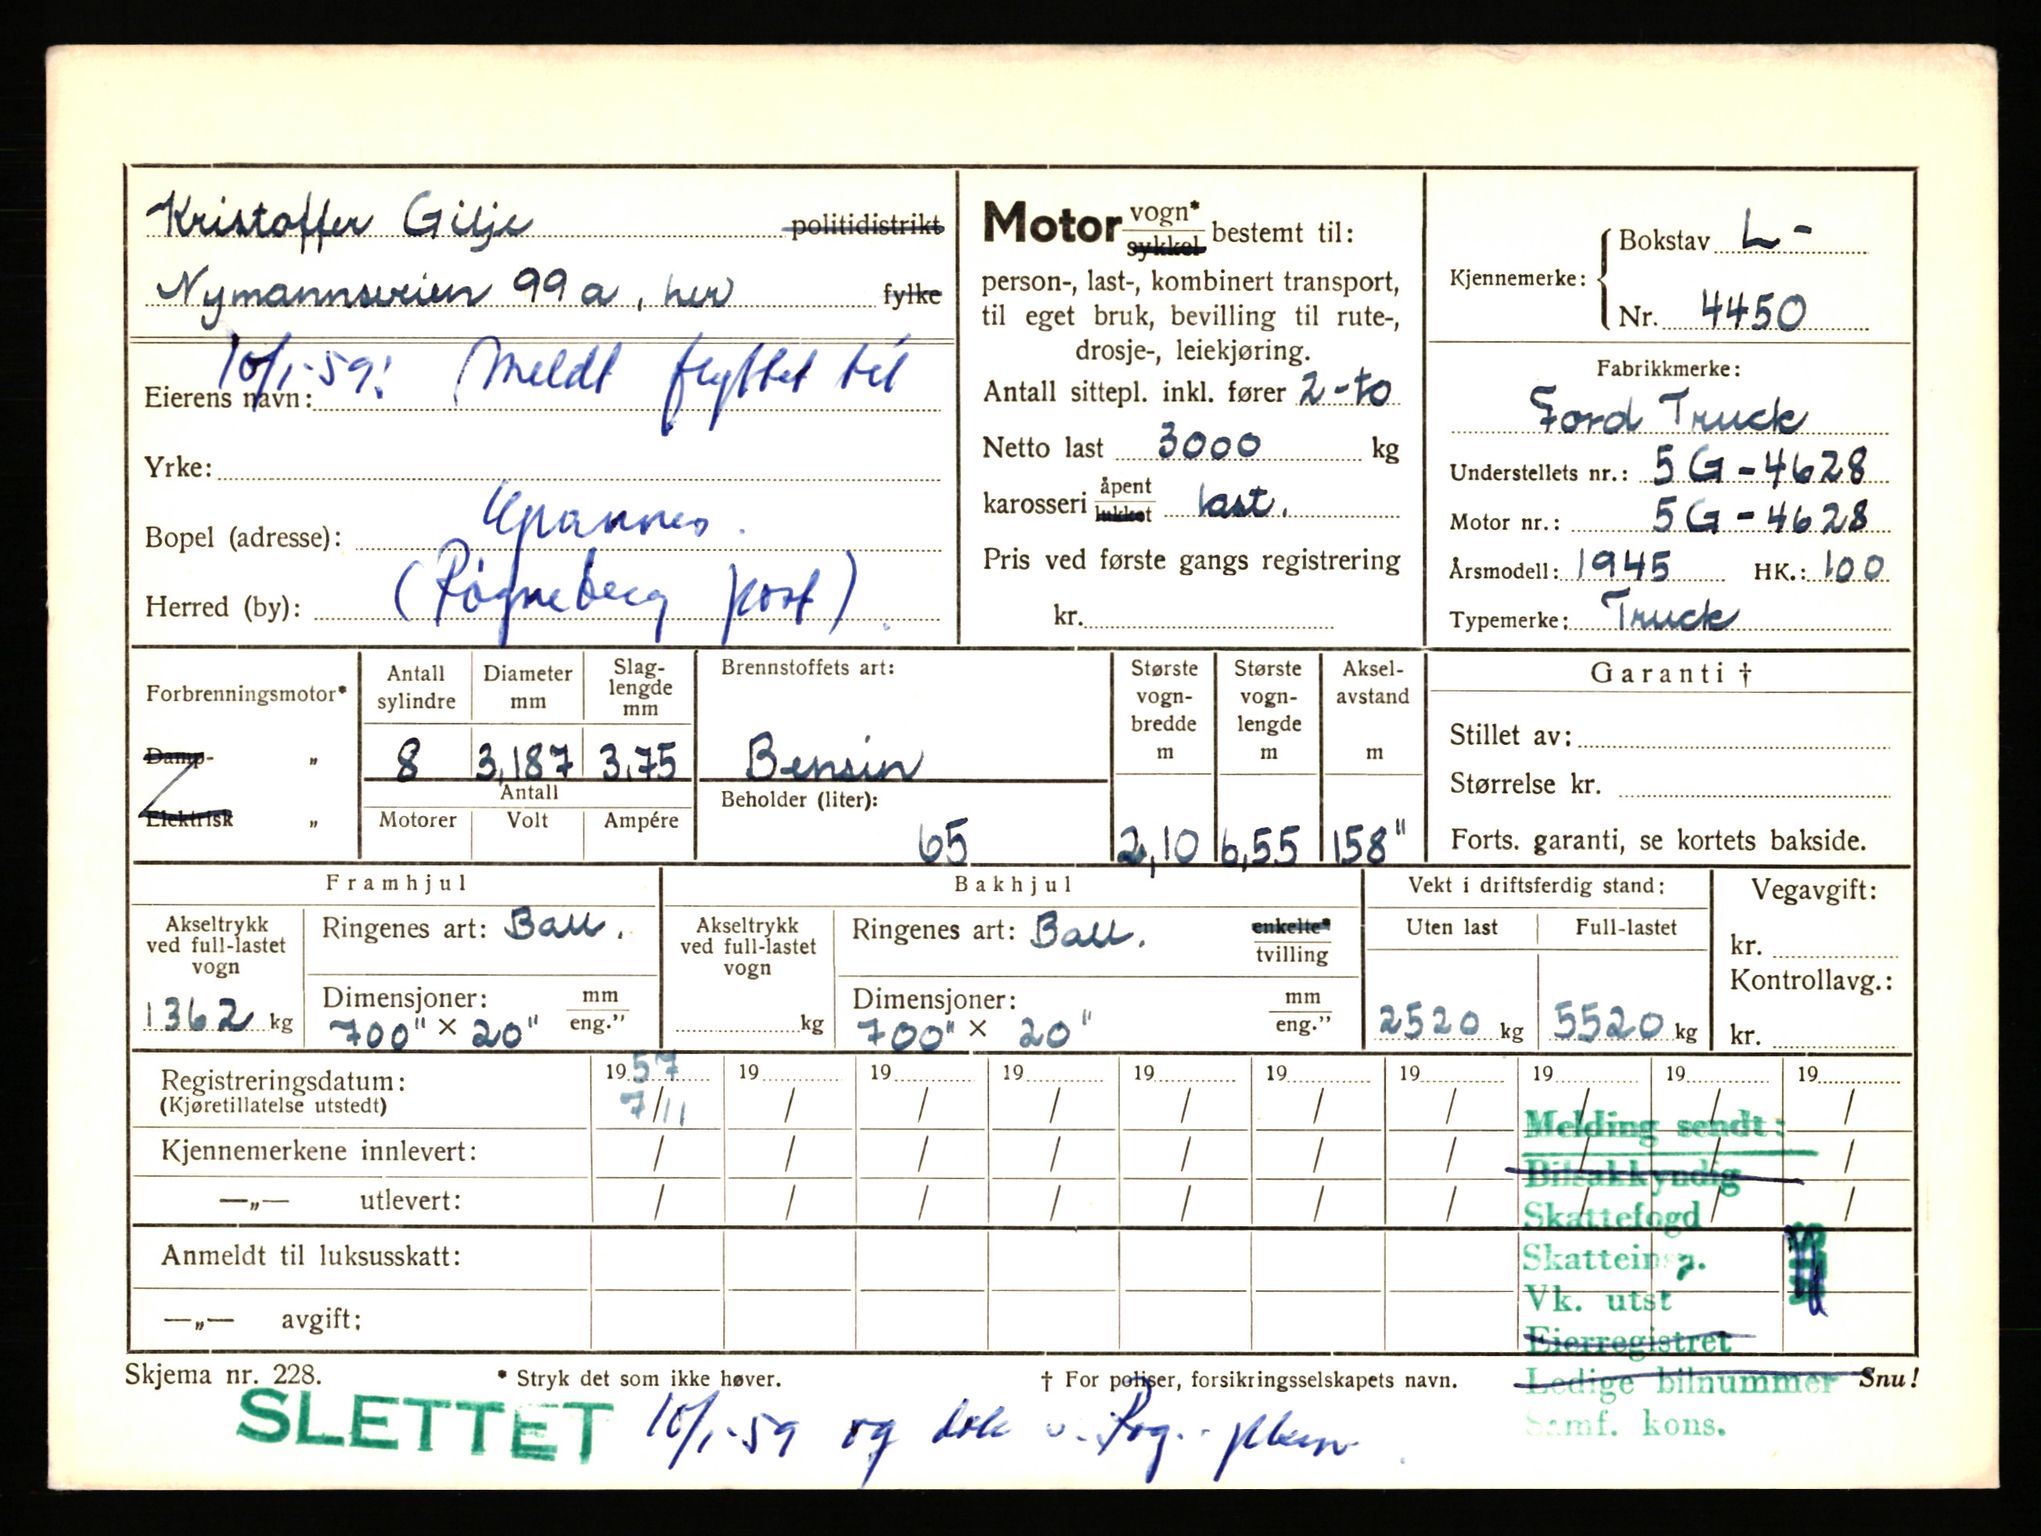 Kristoffer Gilje politidistrikt
Nymannsveien 99a, her fylke
10/1-59: Meldt flyttet til
Eierens navn:
Yrke:
Bopel (adresse):
Herred (by): (Røgneberg post)
Motor vogn* sykkel bestemt til:
person-, last-, kombinert transport,
til eget bruk, bevilling til rute-,
drosje-, leiekjøring.
Antall sittepl. inkl. fører 2-to
Netto last 3000 kg
karosseri åpent lukket last.
Pris ved første gangs registrering
kr.
Kjennemerke: Bokstav L-
Nr. 4450
Fabrikkmerke:
Ford Truck
Understellets nr.: 5G-4628
Motor nr.: 5G-4628
Årsmodell: 1945 HK.: 100
Typemerke: Truck
Forbrenningsmotor*
Damp- „
Elektrisk „
Antall sylindre
Diameter mm
Slag-lengde mm
8 3,187 3.75
Antall
Motorer Volt Ampére
Brennstoffets art:
Bensin
Beholder (liter):
65
Største vogn-bredde m
2,10
Største vogn-lengde m
6,55
Aksel-avstand m
158"
Garanti †
Stillet av:
Størrelse kr.
Forts. garanti, se kortets bakside.
Framhjul
Akseltrykk ved full-lastet vogn
1362 kg
Ringenes art: Ball.
Dimensjoner: mm eng."
700" × 20"
Bakhjul
Akseltrykk ved full-lastet vogn
kg
Ringenes art: Ball. enkelte* tvilling
Dimensjoner: mm eng."
700" × 20"
Vekt i driftsferdig stand:
Uten last Full-lastet
2520 kg 5520 kg
Vegavgift:
kr.
Kontrollavg.:
kr.
Registreringsdatum: 1957 19 19 19 19 19 19 19 19 19
(Kjøretillatelse utstedt) 7/11 / / / / / / / / /
Kjennemerkene innlevert: / / / / / / / / / /
—„— utlevert: / / / / / / / / / /
Anmeldt til luksusskatt:
—„— avgift:
Melding sendt:
Bilsakkyndig
Skattefogd
Skatteinsp.
Vk. utst
Eierregistret
Ledige bilnummer
Samf. kons.
Skjema nr. 228. * Stryk det som ikke høver. † For poliser, forsikringsselskapets navn. Snu!
SLETTET 10/1-59 og